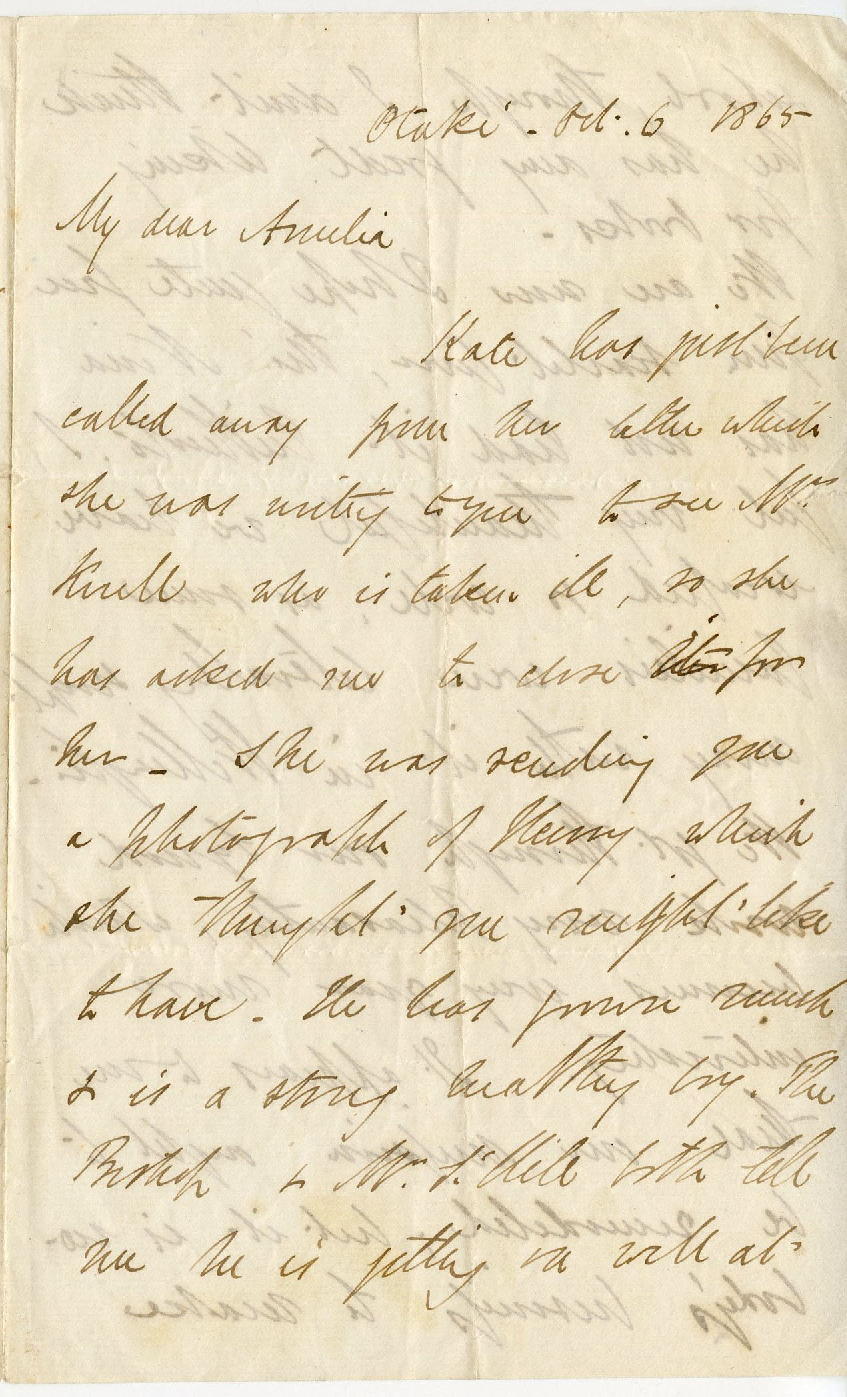 Otaki - Oct. 6 1865
My dear Amelia
Kate has just been
called away from her letter which
she was writing to you to see Mrs
who is taken ill, so she
has asked me to close for
her - She was sending you
a photograph of Henry which
she thought you might like
to have - He has grown much
& is a strong healthy boy. The
Bishop & Mr. St. Hill both tell
me he is getting on well at